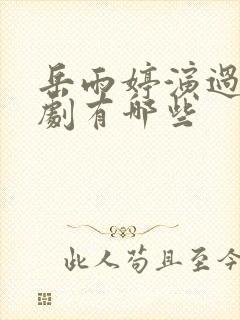 岳雨婷演過
劇有哪些
此人苟且至今